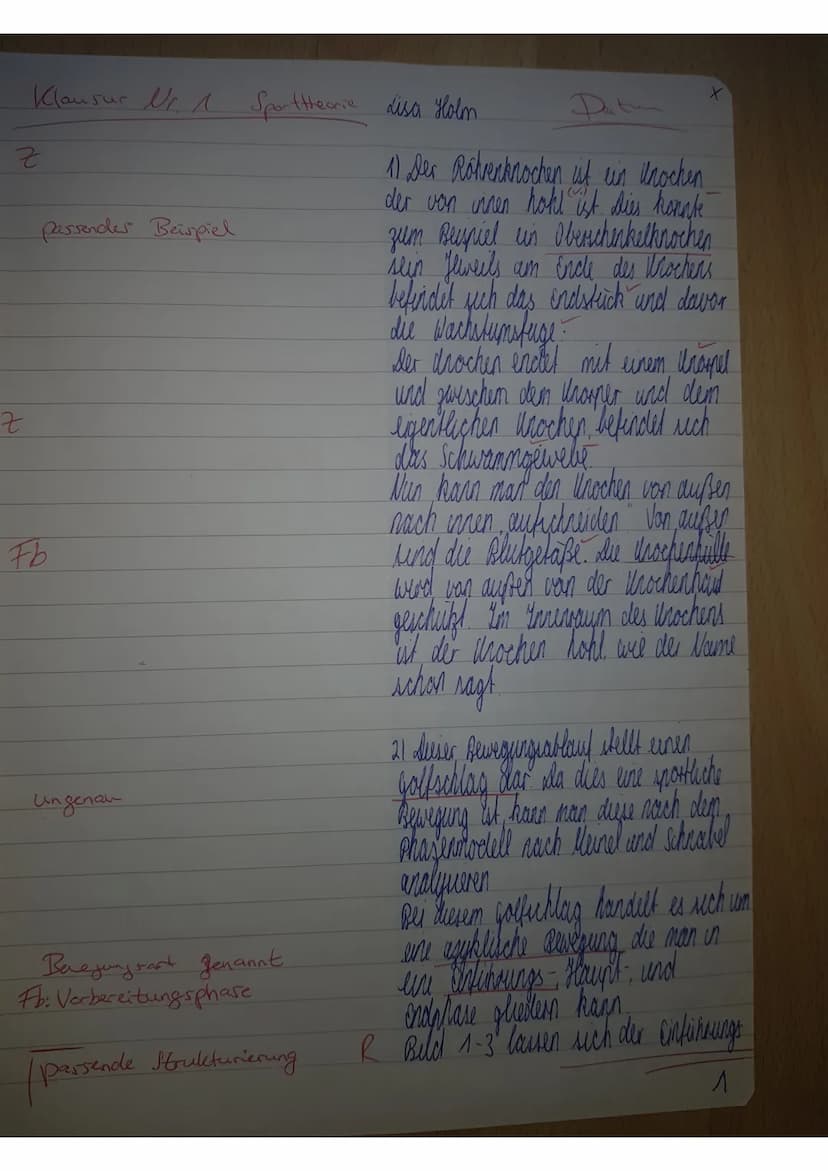 Klausur Nr. 1 Sporttheorie Lisa Holm Datum x
Z
1) Der Röhrenknochen ist ein Knochen
der von innen hohl ist. Dies könnte
passendes Beispiel
zum Beispiel ein Oberschenkelknochen
sein. Jeweils am Ende des Knochens
befindet sich das Endstück und davor
die Wachstumsfuge.
Der Knochen endet mit einem Knorpel
und zwischem dem Knorper und dem
Z
eigentlichen Knochen, befindet sich
das Schwammgewebe.
Nun kann man den Knochen von außen
nach innen „aufschneiden“. Von außen
Fb
sind die Blutgefäße. Die Knochenhülle
wird von außen von der Knochenhaut
geschützt. Im Innenraum des Knochens
ist der Knochen hohl, wie der Name
schon sagt.
2) Dieser Bewegungsablauf stellt einen
ungenau
Golfschlag dar. Da dies eine sportliche
Bewegung ist, kann man diese nach dem
Phasenmodell nach Meinel und Schnabel
analysieren.
Bei diesem Golfschlag handelt es sich um
Bewegungsart genannt
eine azyklische Bewegung, die man in
Fb: Vorbereitungsphase
eine Einführungs-, Haupt-, und
Endphase gliedern kann.
passende Strukturierung R
Bild 1-3 lassen sich der Einführungs
1